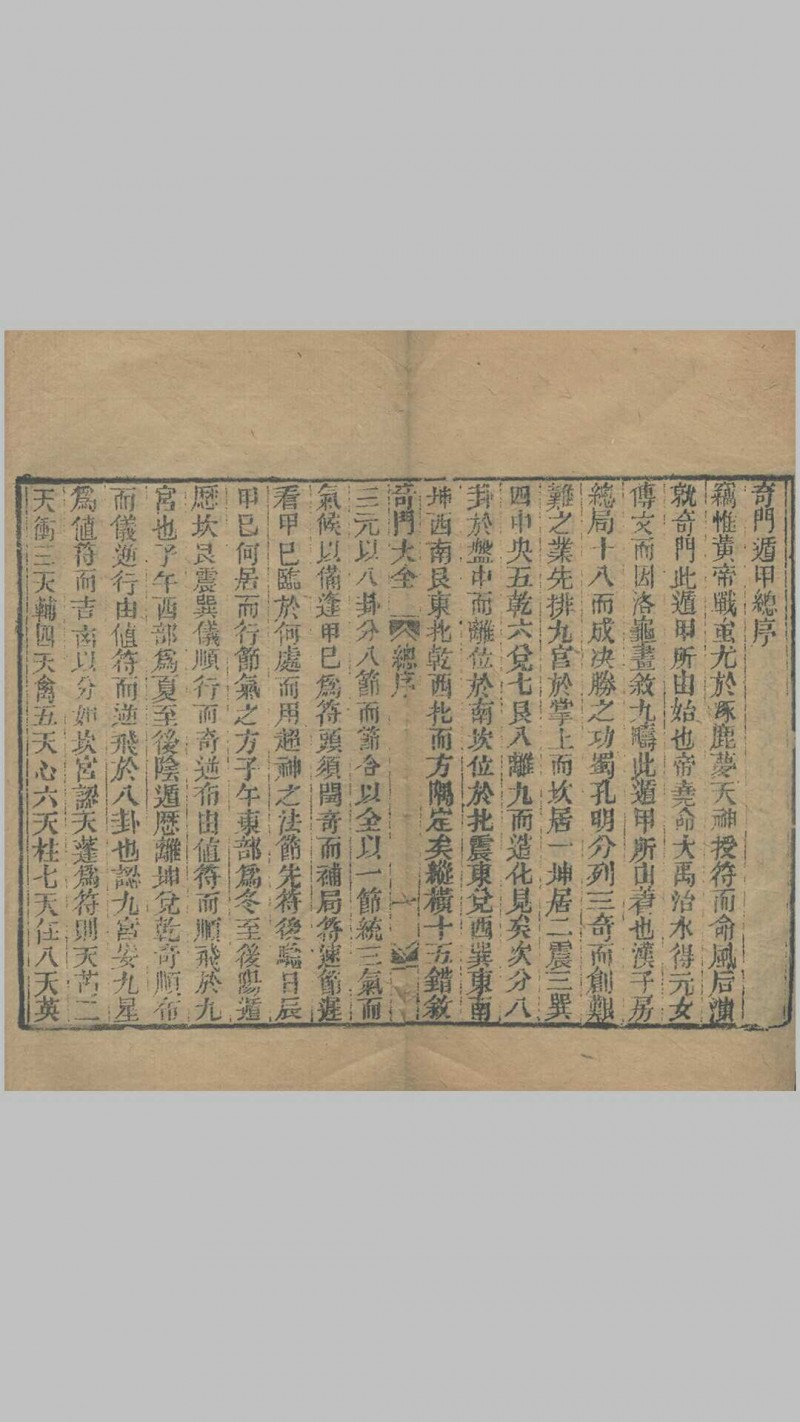 奇門遁甲總序
竊惟黃帝戰蚩尤於涿鹿夢天神授符而命風后演
就奇門此遁甲所由始也帝堯命大禹治水得元女
傳文而因洛龜畫敘九疇此遁甲所由著也漢子房
總局十八而成决勝之功蜀孔明分列三奇而創艱
難之業先排九宮於掌上而坎居一坤居二震三巽
四中央五乾六兌七艮八離九而造化見矣次分八
卦於盤中而離位於南坎位於北震東兌西巽東南
坤西南艮東北乾西北而方隅定矣縱橫十五錯敘
奇門大全 總序 一
三元以八卦分八節而節合以全以一節統三氣而
氣候以備逢甲巳爲符頭須閏奇而補局符速節遲
看甲巳臨於何處而用超神之法節先符後驗日辰
甲巳何居而行節氣之方子午東部爲冬至後陽遁
歷坎艮震巽儀順行而奇逆布由値符而順飛於九
宮也子午西部爲夏至後陰遁歷離坤兌乾奇順布
而儀逆行由値符而逆飛於八卦也認九宮安九星
爲値符而吉凶以分如坎宮認天蓬爲符則天芮二
天衝三天輔四天禽五天心六天柱七天任八天英